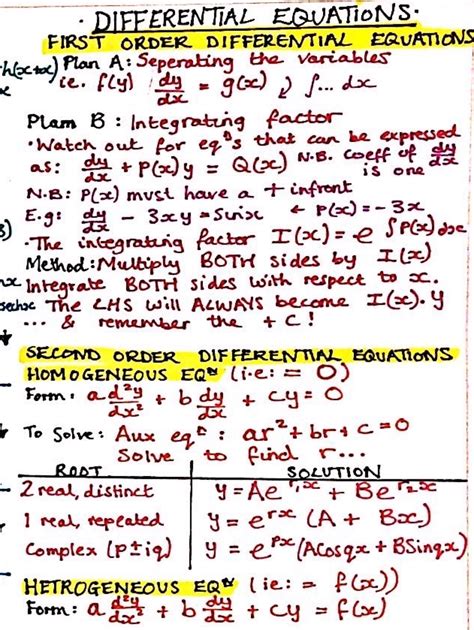 · DIFFERENTIAL EQUATIONS·
FIRST ORDER DIFFERENTIAL EQUATIONS
Plan A: Seperating the variables
ie. f(y) dy/dx = g(x) ∫... dx
Plam B : Integrating factor
·Watch out for eqⁿs that can be expressed
as: dy/dx + P(x)y = Q(x) N.B. Coeff of dy/dx is one
N.B: P(x) must have a + infront
E.g: dy/dx - 3xy = Sinx ← P(x) = -3x
·The integrating factor I(x) = e^∫P(x)dx
Method: Multiply BOTH sides by I(x)
Integrate BOTH sides with respect to x.
The LHS will ALWAYS become I(x).y
... & remember the + C!
SECOND ORDER DIFFERENTIAL EQUATIONS
HOMOGENEOUS EQⁿ (i.e: = 0)
Form: a d²y/dx² + b dy/dx + cy = 0
To Solve: Aux eqⁿ: ar² + br + c = 0
Solve to find r...
ROOT SOLUTION
2 real, distinct y = Ae^r₁x + Be^r₂x
1 real, repeated y = e^rx (A + Bx)
Complex (p±iq) y = e^px (Acosqx + BSinqx)
HETROGENEOUS EQⁿ (ie: = f(x))
Form: a d²y/dx² + b dy/dx + cy = f(x)